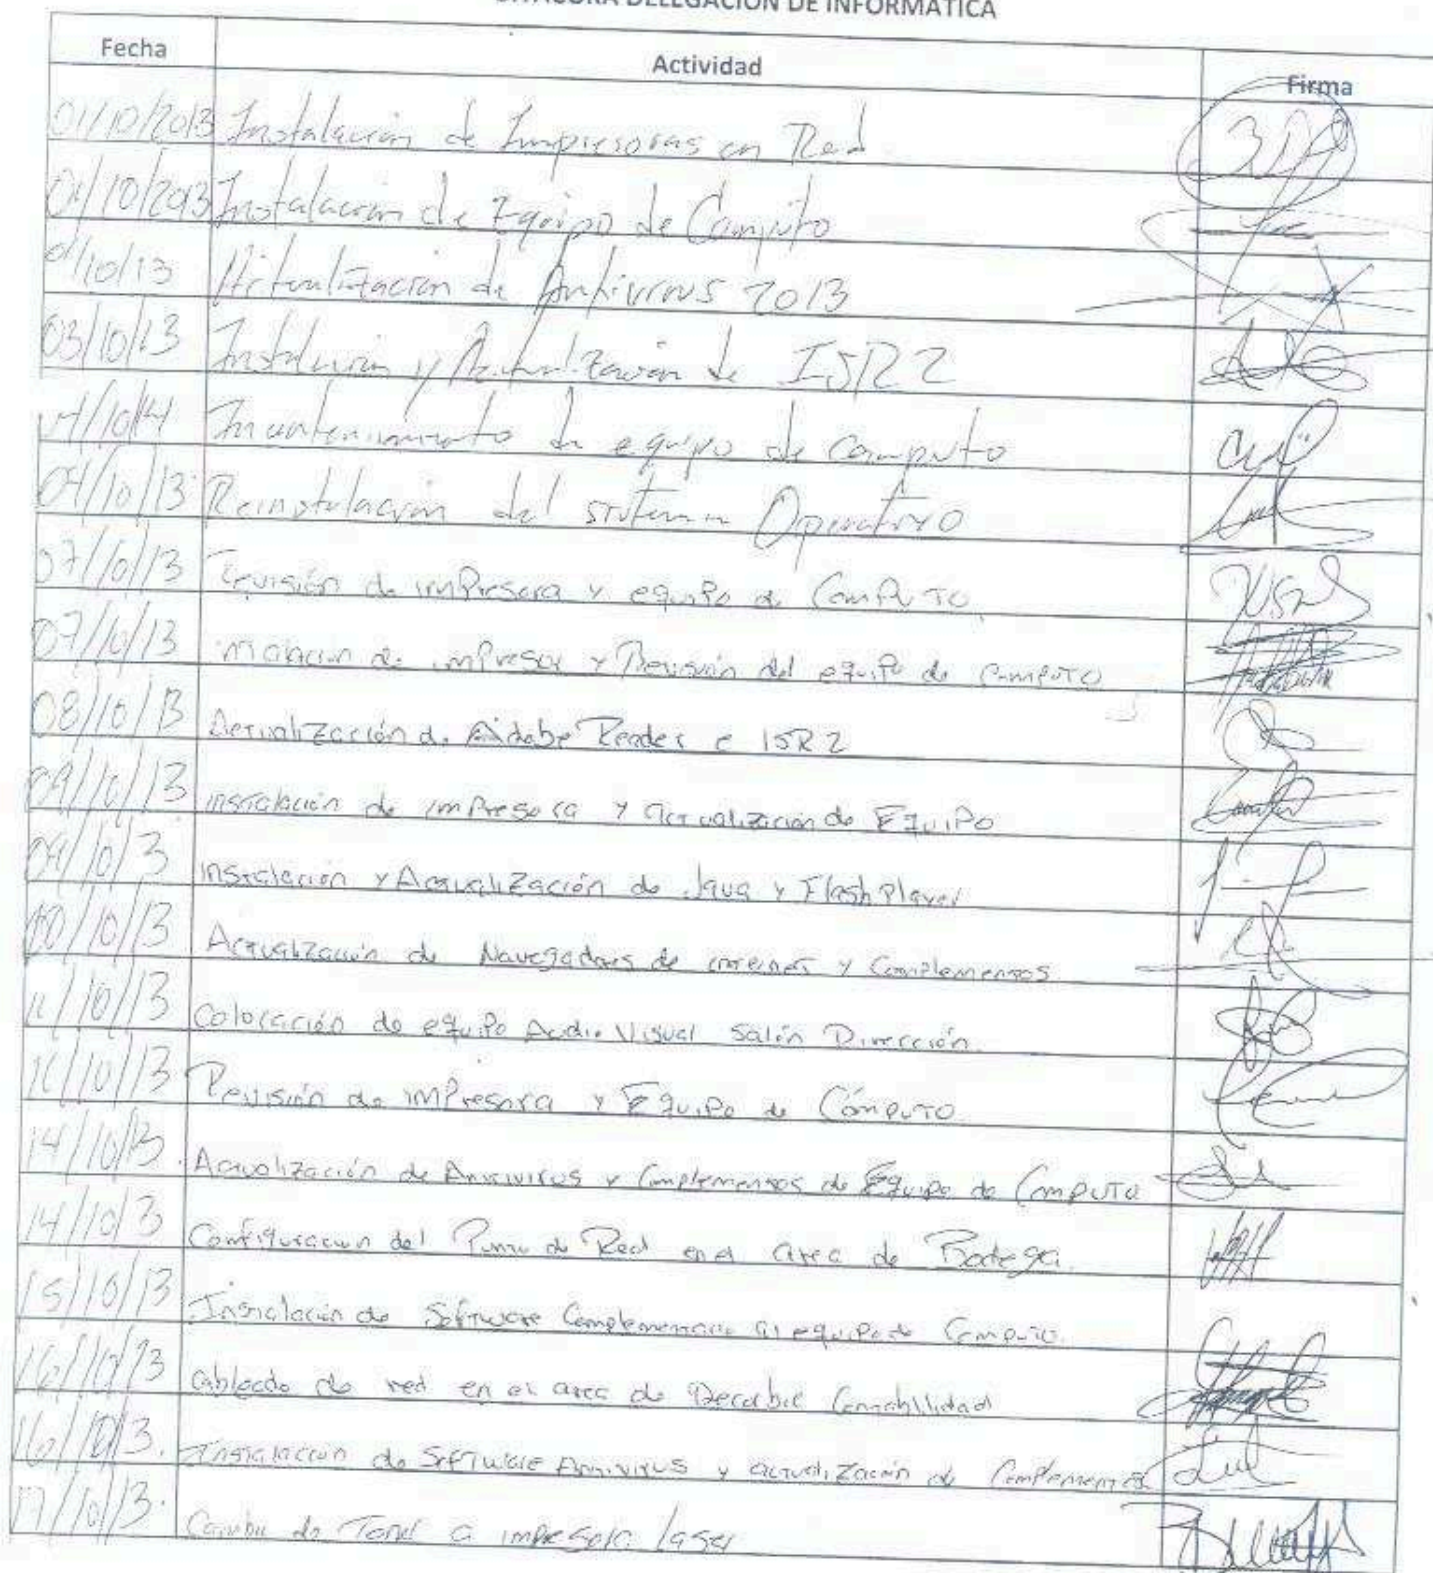 BITACORA DELEGACION DE INFORMATICA
Fecha Actividad Firma
01/10/2013 Instalación de Impresoras en Red
01/10/2013 Instalacion de Equipo de Computo
01/10/13 Actualizacion de Antivirus 2013
03/10/13 Instalación y Actualización de ISR2
Mantenimiento de equipo de computo
04/10/13 Reinstalación del sistema Operativo
07/10/13 Revisión de impresora y equipo de Computo
07/10/13 de impresor y Revisión del equipo de computo
08/10/13 Actualización de Adobe Reader e ISR2
09/10/13 instalación de impresora y actualización de Equipo
09/10/13 instalación y Actualización de Java y Flash Player
10/10/13 Actualización de Navegadores de internet y Complementos
11/10/13 Colocación de equipo Audio Visual Salón Dirección
11/10/13 Revisión de impresora y Equipo de Cómputo
14/10/13 Actualización de Antivirus y Complementos de Equipo de Computo
14/10/13 Configuracion del Punto de Red en el area de Bodega
15/10/13 Instalación de Software Complementario al equipo de Computo
16/10/13 cableado de red en el area de Contabilidad
16/10/13. Instalación de Software Antivirus y actualización de Complementos
17/10/13. Cambio de Toner a impresora laser